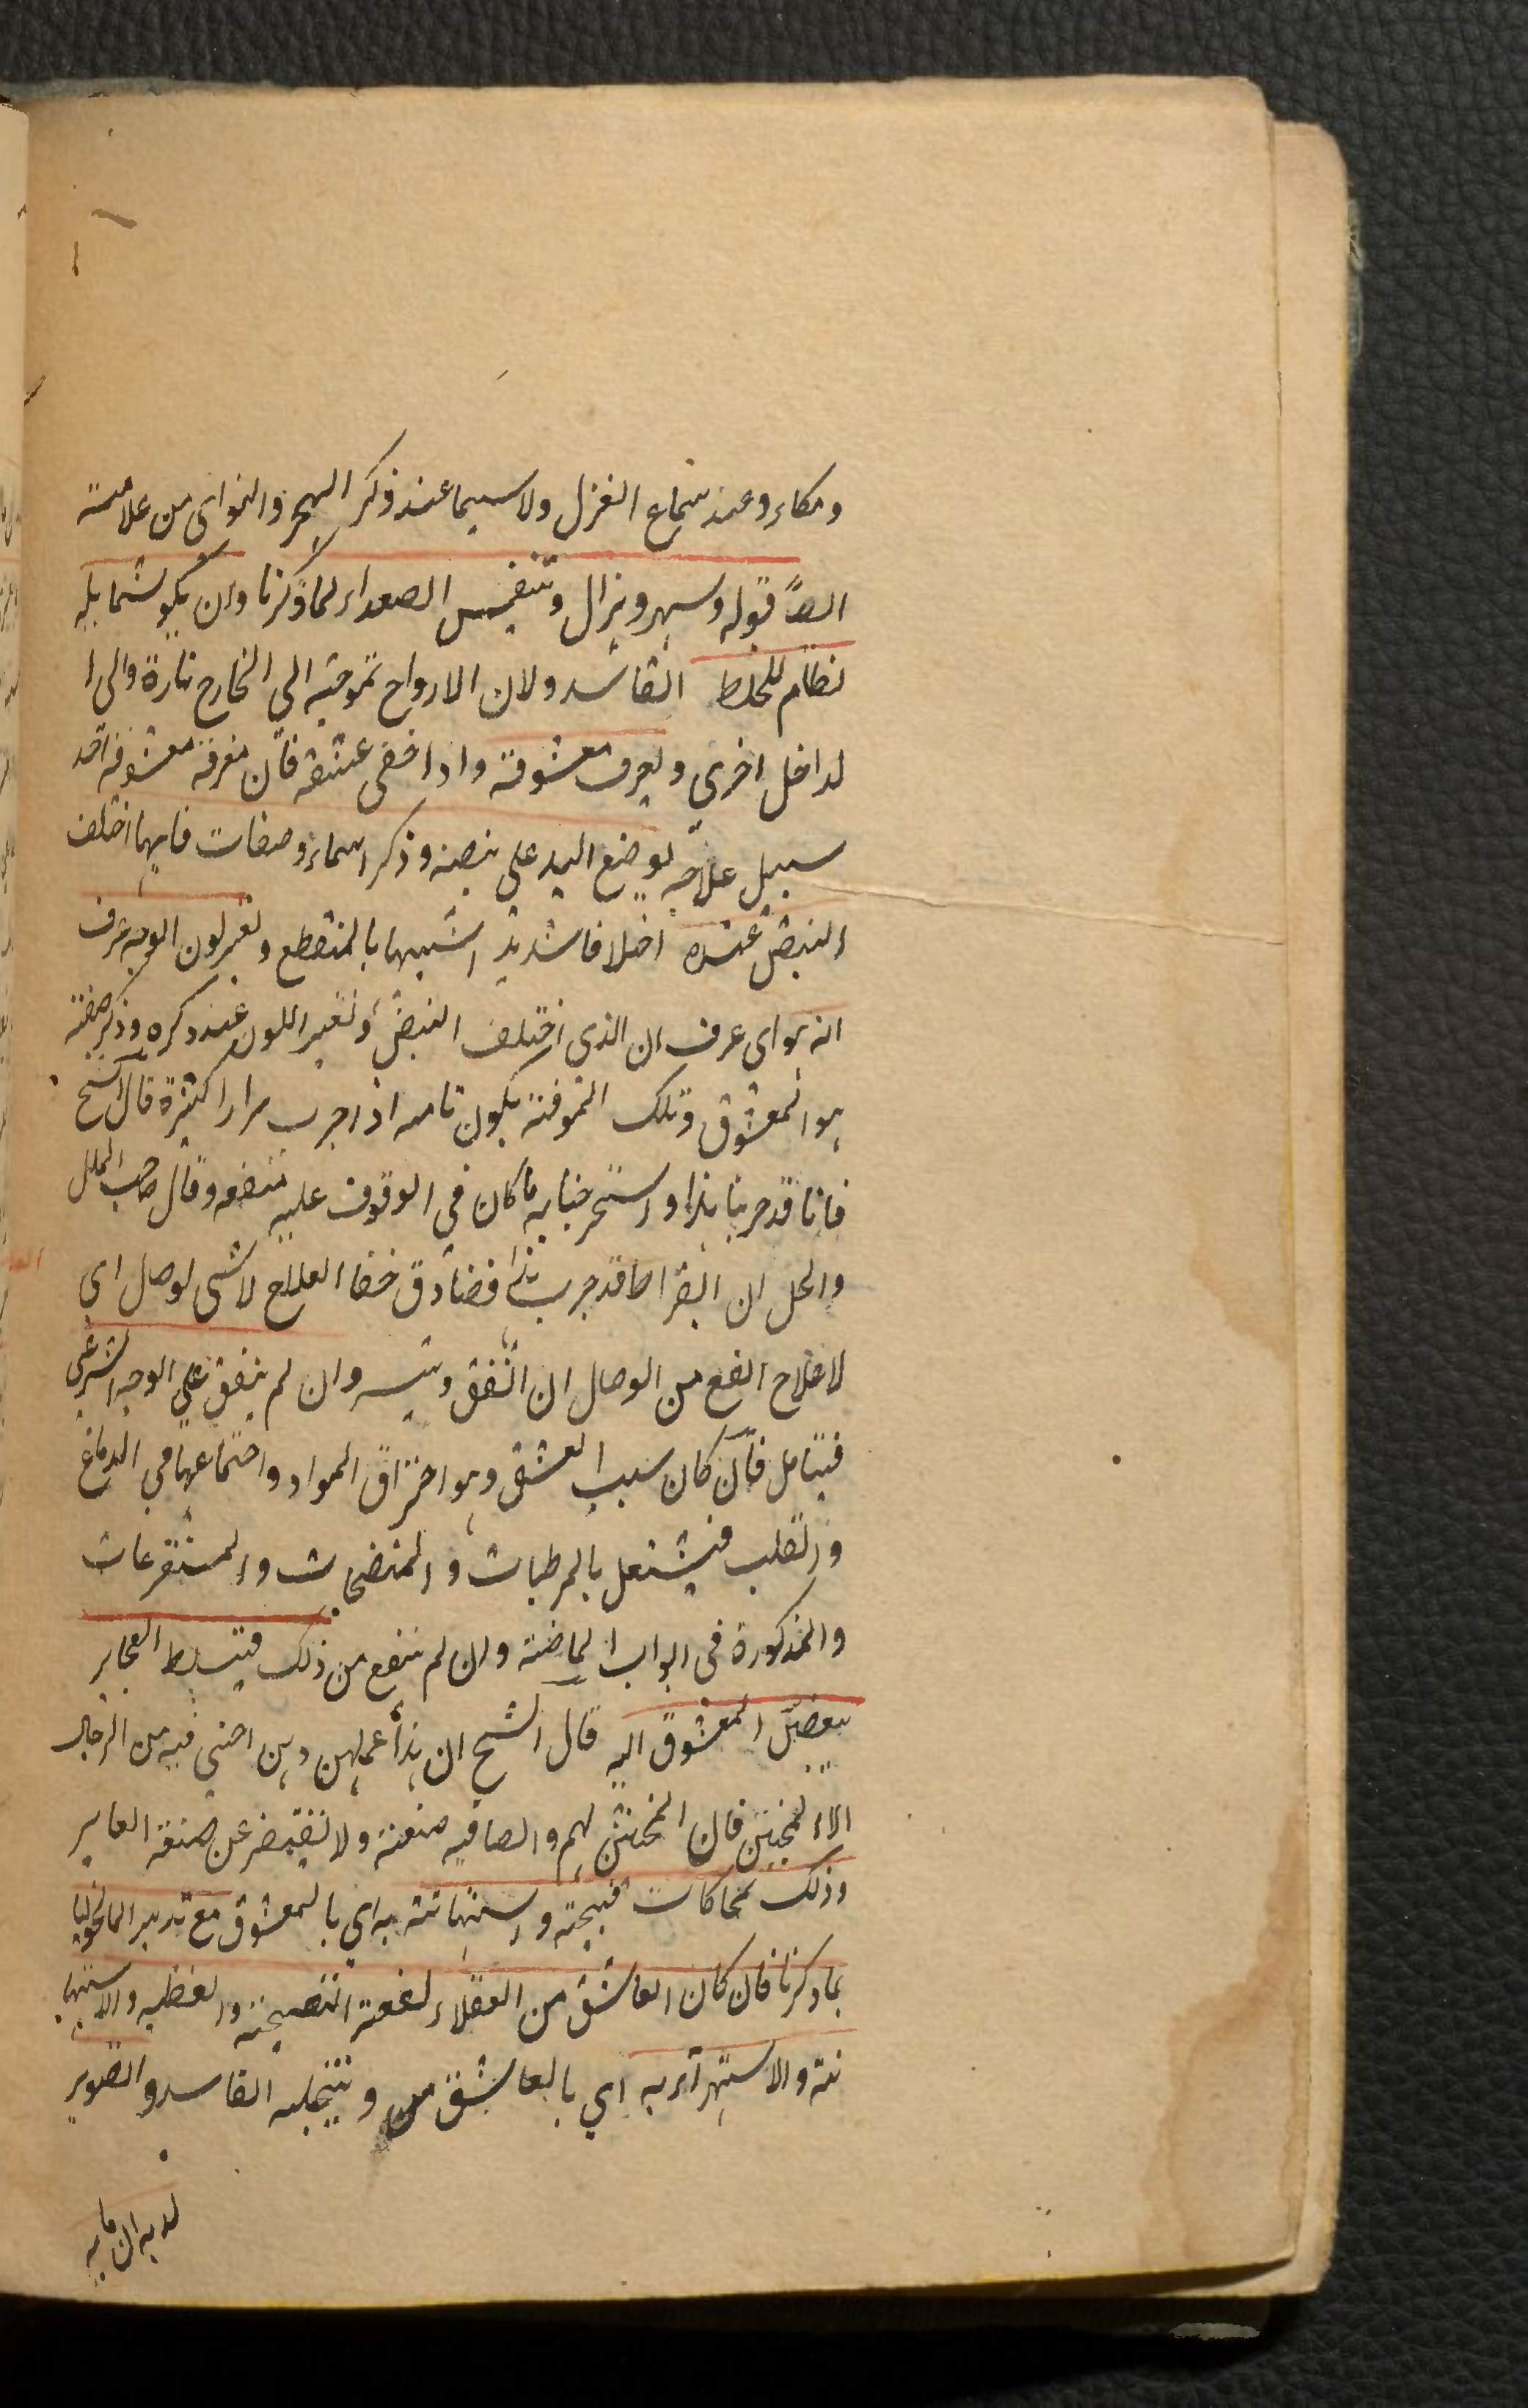 وبكاء وعند سماع الغزل ولا سيما عند ذكر الهجر والنوى من علامته
ايضًا قوله وسهر وهزال وتنفيس الصعداء لما ذكرنا وان يكون شمايله
نظام للخلط الفاسد ولان الارواح تموجته الى الخارج تارة والى ا
لداخل اخرى ويعرف معشوقة واذا خفى عشقه فان معرفة معشوقه احد
سبيل علاجه بوضع اليد على نبضه وذكر اسماء وصفات فايهما اختلف
النبض عنده اختلافا شديدا شبيها بالمنقطع وتغير لون الوجه عرف
انه هو اى عرف ان الذى اختلف النبض وتغير اللون عند ذكره وذكر صفته
هو المعشوق وتلك المعرفة يكون تامه اذا جرب مرارا كثيرة قال الشيخ
فانا قد جربنا هذا واستخرجنا به ما كان فى الوقوف عليه منفعه وقال صاحب العلل
والحل ان البقراط قد جرب هذا فصادق خفا العلاج لا شى لوصل اى
لا علاج انفع من الوصال ان اتفق وتيسر وان لم يتفق على الوجه الشرعى
فيتامل فان كان سبب العشق وهو احتراق المواد واجتماعها فى الدماغ
والقلب فيشتغل بالمرطبات والمنضجات والمستفرغات
والمذكورة فى ابواب الماضية وان لم ينفع من ذلك فيتسلط العجايز
يبغضن المعشوق اليه قال الشيخ ان هذا عملهن وهن احنى فيه من الرجال
الا المخنثين فان المخنثين لهم والصافيه صنعة ولا تقيصر عن صنعة العجايز
وذلك بمحاكات قبيحة واستهانته به اى بالمعشوق مع تدبير المالنخوليا
بما ذكرنا فان كان العاشق من العقلاء نفعته النصيحة والعظيه والاستها
نته والاستهزاء به اى بالعاشق من وتخيله الفاسد والتصوير
لديه ان ما به